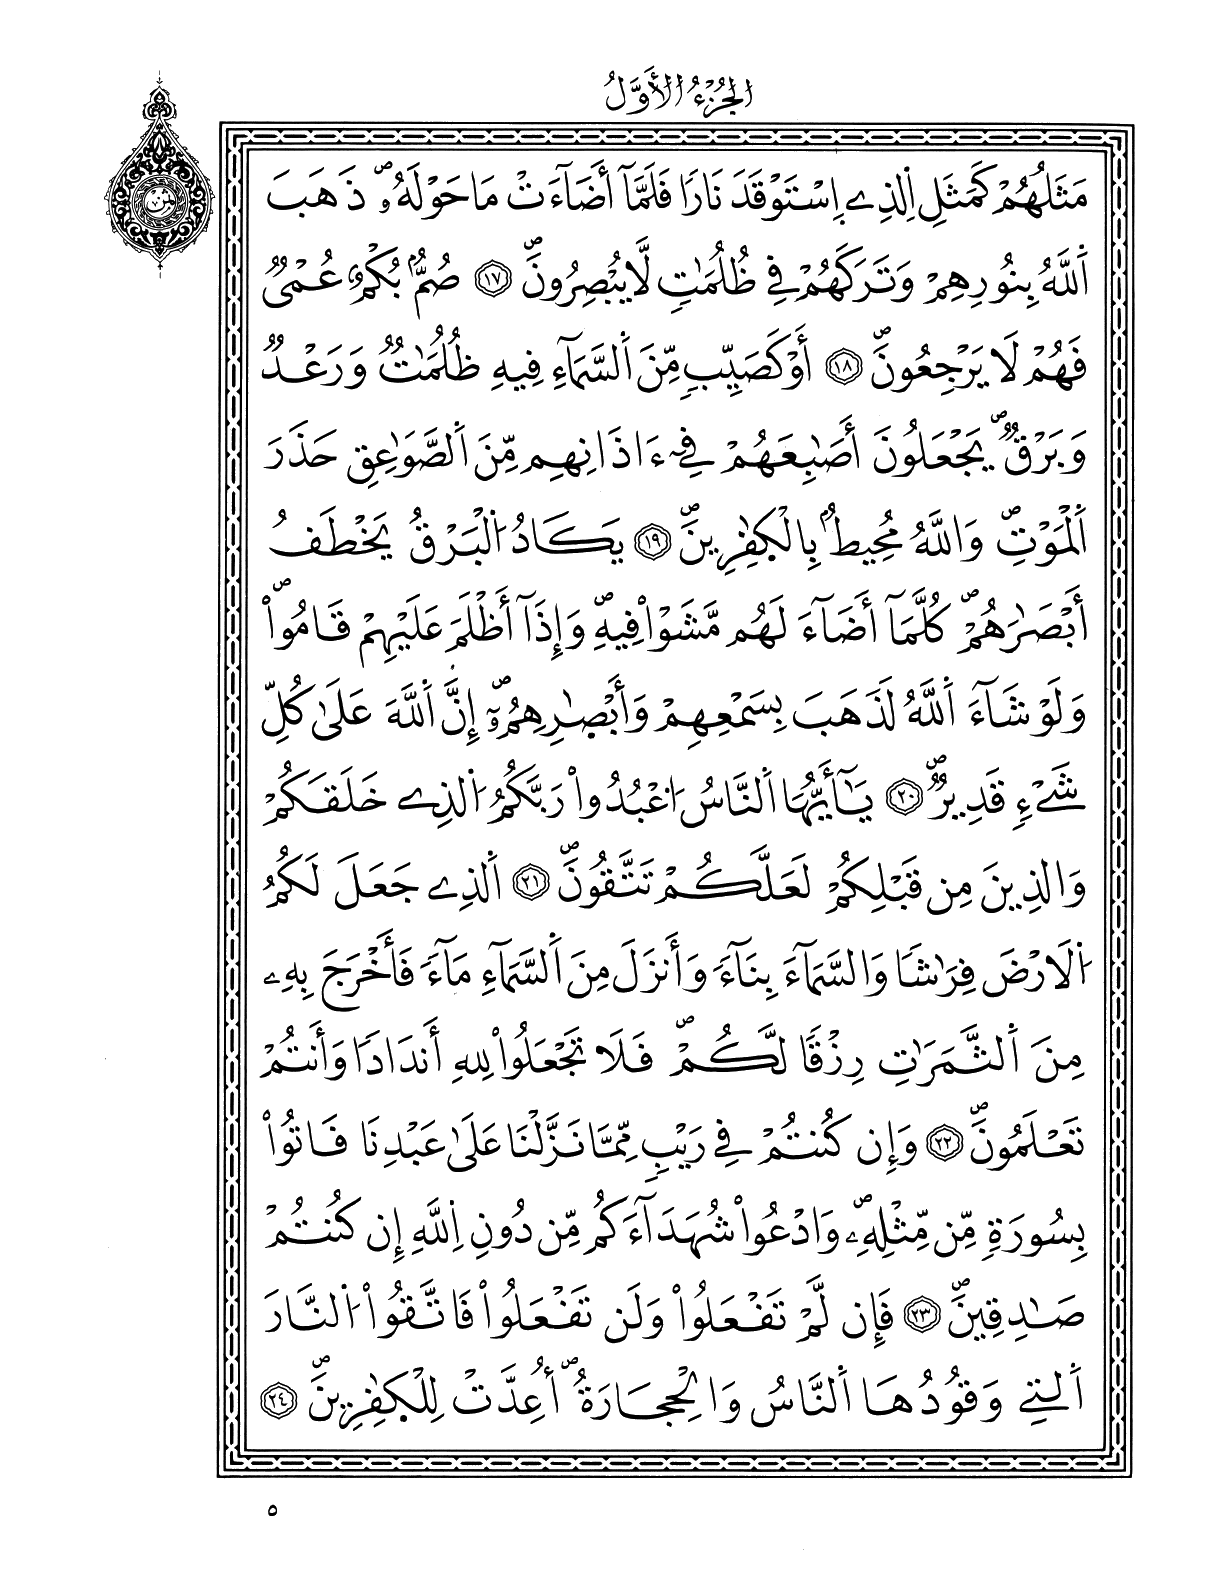 الجُزْءُ الأَوَّلُ
ثمن
مَثَلُهُمْ كَمَثَلِ اِ۬لذِے اِ۪سْتَوْقَدَ نَاراٗ فَلَمَّآ أَضَآءَتْ مَا حَوْلَهُۥ ذَهَبَ
اَ۬للَّهُ بِنُورِهِمْ وَتَرَكَهُمْ فِے ظُلُمَٰتٖ لَّا يُبْصِرُونَۖ ١٧ صُمُّۢ بُكْمٌ عُمْيٞ
فَهُمْ لَا يَرْجِعُونَۖ ١٨ أَوْ كَصَيِّبٖ مِّنَ اَ۬لسَّمَآءِ فِيهِ ظُلُمَٰتٞ وَرَعْدٞ
وَبَرْقٞۖ يَجْعَلُونَ أَصَٰبِعَهُمْ فِےٓ ءَاذَانِهِم مِّنَ اَ۬لصَّوَٰعِقِ حَذَرَ
اَ۬لْمَوْتِۖ وَاللَّهُ مُحِيطُۢ بِالْكٰ۪فِرِينَۖ ١٩ يَكَادُ اُ۬لْبَرْقُ يَخْطَفُ
أَبْصَٰرَهُمْۖ كُلَّمَآ أَضَآءَ لَهُم مَّشَوْاْ فِيهِۖ وَإِذَآ أَظْلَمَ عَلَيْهِمْ قَامُواْۖ
وَلَوْ شَآءَ اَ۬للَّهُ لَذَهَبَ بِسَمْعِهِمْ وَأَبْصٰ۪رِهِمُۥٓۖ إِنَّ اَ۬للَّهَ عَلَىٰ كُلِّ
شَےْءٖ قَدِيرٞۖ ٢٠ يَٰٓأَيُّهَا اَ۬لنَّاسُ اُ۟عْبُدُواْ رَبَّكُمُ اُ۬لذِے خَلَقَكُمْ
وَالذِينَ مِن قَبْلِكُمْ لَعَلَّكُمْ تَتَّقُونَۖ ٢١ اَ۬لذِے جَعَلَ لَكُمُ
اُ۬لَارْضَ فِرَٰشاٗ وَالسَّمَآءَ بِنَآءٗ وَأَنزَلَ مِنَ اَ۬لسَّمَآءِ مَآءٗ فَأَخْرَجَ بِهِۦ
مِنَ اَ۬لثَّمَرَٰتِ رِزْقاٗ لَّكُمْۖ فَلَا تَجْعَلُواْ لِلهِ أَندَاداٗ وَأَنتُمْ
تَعْلَمُونَۖ ٢٢ وَإِن كُنتُمْ فِے رَيْبٖ مِّمَّا نَزَّلْنَا عَلَىٰ عَبْدِنَا فَاتُواْ
بِسُورَةٖ مِّن مِّثْلِهِۦۖ وَادْعُواْ شُهَدَآءَكُم مِّن دُونِ اِ۬للَّهِ إِن كُنتُمْ
صَٰدِقِينَۖ ٢٣ فَإِن لَّمْ تَفْعَلُواْ وَلَن تَفْعَلُواْ فَاتَّقُواْ اُ۬لنَّارَ
اَ۬لتِے وَقُودُهَا اَ۬لنَّاسُ وَالْحِجَارَةُۖ أُعِدَّتْ لِلْكٰ۪فِرِينَۖ ٢٤
٥